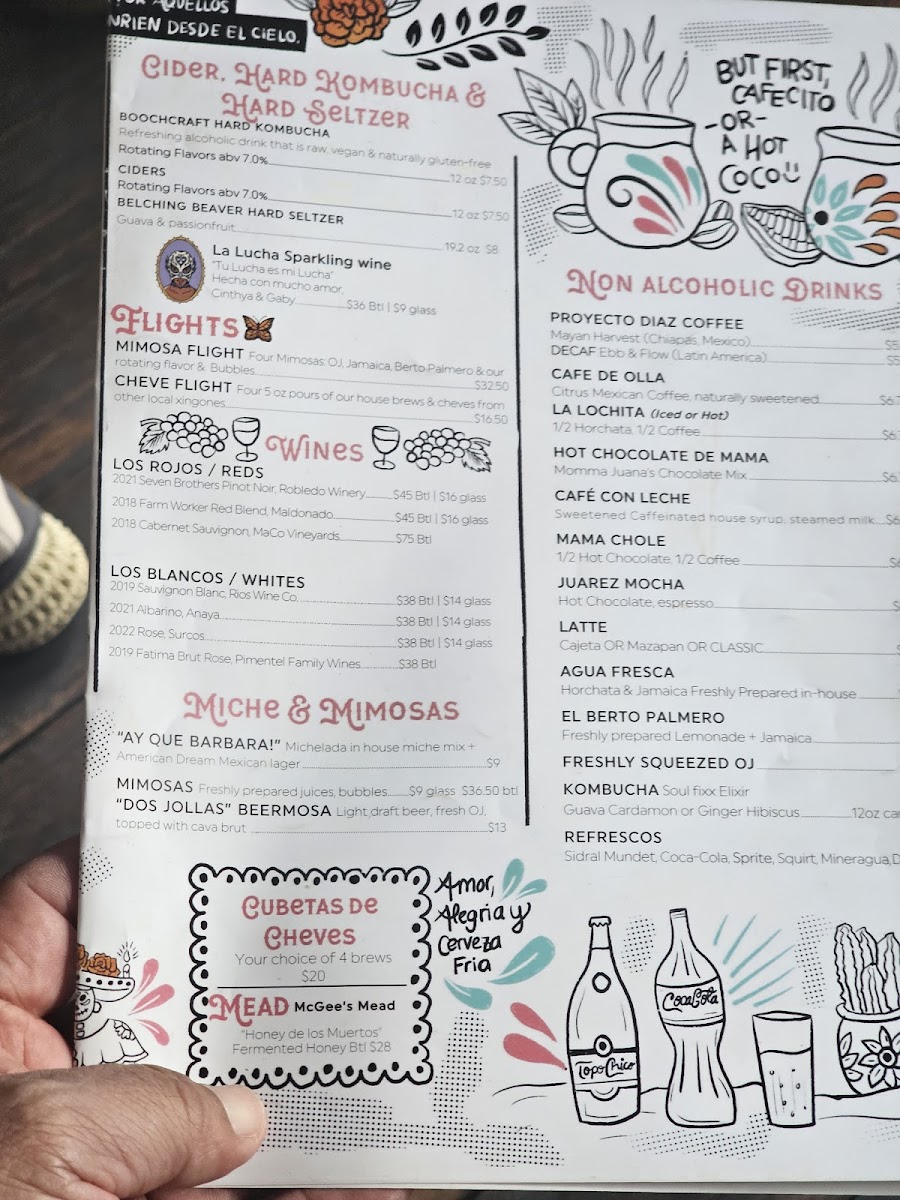 POR AQUELLOS
NRIEN DESDE EL CIELO.
CIDER, HARD KOMBUCHA &
HARD SELTZER
BOOCHCRAFT HARD KOMBUCHA
Refreshing alcoholic drink that is raw, vegan & naturally gluten-free
Rotating Flavors abv 7.0% 12 oz $7.50
CIDERS
Rotating Flavors abv 7.0% 12 oz $7.50
BELCHING BEAVER HARD SELTZER
Guava & passionfruit 19.2 oz $8
La Lucha Sparkling wine
"Tu Lucha es mi Lucha"
Hecha con mucho amor,
Cinthya & Gaby $36 Btl | $9 glass
FLIGHTS
MIMOSA FLIGHT Four Mimosas: OJ, Jamaica, Berto Palmero & our
rotating flavor & Bubbles $32.50
CHEVE FLIGHT Four 5 oz pours of our house brews & cheves from
other local xingones $16.50
WINES
LOS ROJOS / REDS
2021 Seven Brothers Pinot Noir, Robledo Winery $45 Btl | $16 glass
2018 Farm Worker Red Blend, Maldonado $45 Btl | $16 glass
2018 Cabernet Sauvignon, MaCo Vineyards $75 Btl
LOS BLANCOS / WHITES
2019 Sauvignon Blanc, Rios Wine Co. $38 Btl | $14 glass
2021 Albarino, Anaya $38 Btl | $14 glass
2022 Rose, Surcos $38 Btl | $14 glass
2019 Fatima Brut Rose, Pimentel Family Wines $38 Btl
MICHE & MIMOSAS
"AY QUE BARBARA!" Michelada in house miche mix +
American Dream Mexican lager $9
MIMOSAS Freshly prepared juices, bubbles $9 glass $36.50 btl
"DOS JOLLAS" BEERMOSA Light draft beer, fresh OJ,
topped with cava brut $13
CUBETAS DE
CHEVES
Your choice of 4 brews
$20
MEAD McGee's Mead
"Honey de los Muertos"
Fermented Honey Btl $28
Amor,
Alegria y
Cerveza
Fria
BUT FIRST,
CAFECITO
-OR-
A HOT
COCO
NON ALCOHOLIC DRINKS
PROYECTO DIAZ COFFEE
Mayan Harvest (Chiapas, Mexico) $5
DECAF Ebb & Flow (Latin America) $5
CAFE DE OLLA
Citrus Mexican Coffee, naturally sweetened $6.
LA LOCHITA (Iced or Hot)
1/2 Horchata, 1/2 Coffee $6.
HOT CHOCOLATE DE MAMA
Momma Juana's Chocolate Mix $6.
CAFÉ CON LECHE
Sweetened Caffeinated house syrup, steamed milk $6
MAMA CHOLE
1/2 Hot Chocolate, 1/2 Coffee
JUAREZ MOCHA
Hot Chocolate, espresso
LATTE
Cajeta OR Mazapan OR CLASSIC
AGUA FRESCA
Horchata & Jamaica Freshly Prepared in-house
EL BERTO PALMERO
Freshly prepared Lemonade + Jamaica
FRESHLY SQUEEZED OJ
KOMBUCHA Soul fixx Elixir
Guava Cardamon or Ginger Hibiscus 12oz ca
REFRESCOS
Sidral Mundet, Coca-Cola, Sprite, Squirt, Mineragua, D
Topo Chico
CocaCola